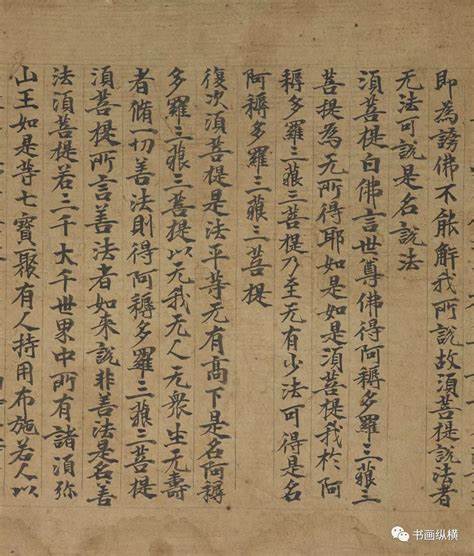 即為謗佛不能解我所說故須菩提說法者
无法可說是名說法
須菩提白佛言世尊佛得阿耨多羅三藐三
菩提為无所得耶如是如是須菩提我於阿
耨多羅三藐三菩提乃至无有少法可得是名
阿耨多羅三藐三菩提
復次須菩提是法平等无有高下是名阿耨
多羅三藐三菩提以无我无人无衆生无壽
者脩一切善法則得阿耨多羅三藐三菩提
須菩提所言善法者如来說非善法是名善
法須菩提若三千大千世界中所有諸須弥
山王如是等七寶聚有人持用布施若人以
书画纵横